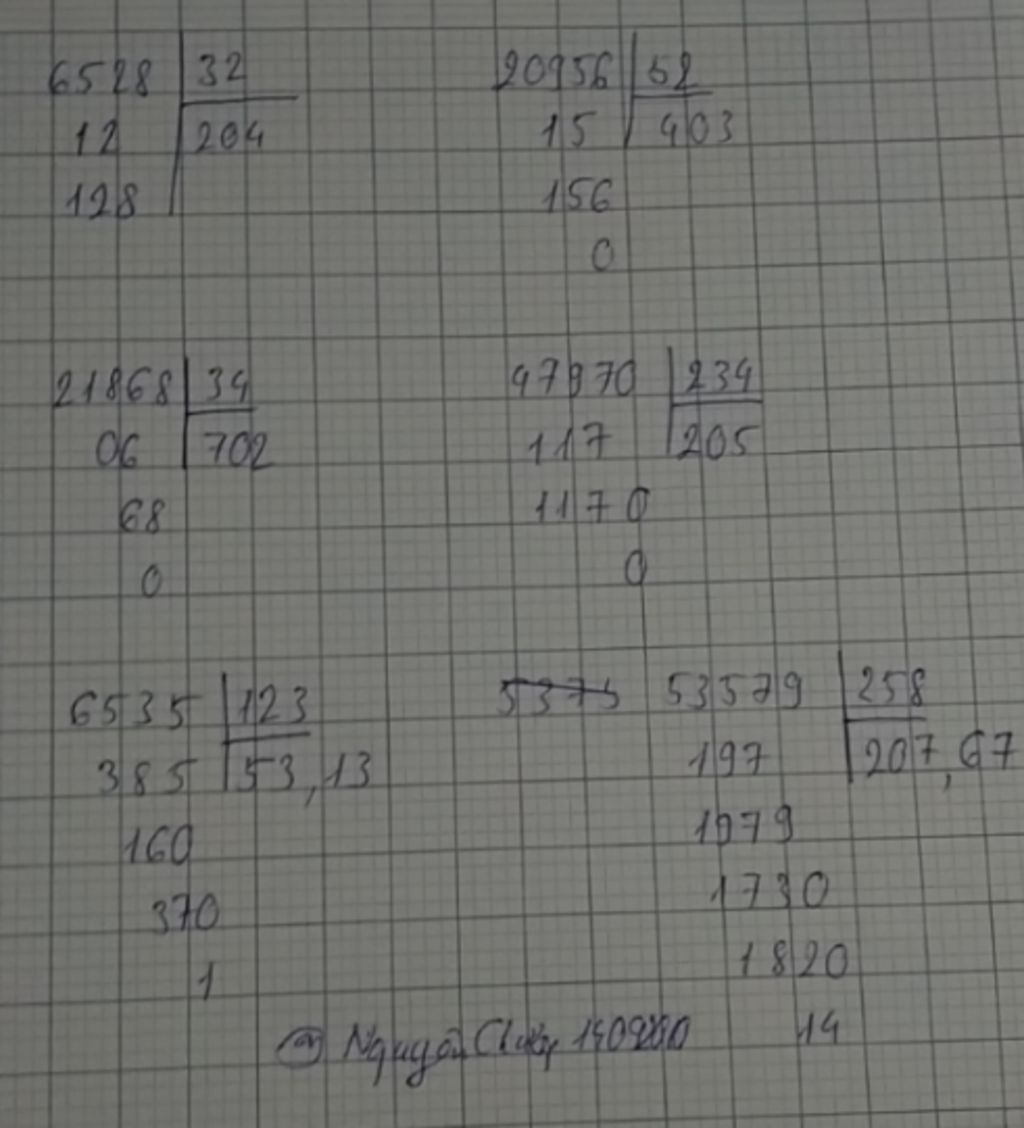 6528 32
12 204
128
20956 52
15 403
156
0
21868 34
06 702
68
0
47970 234
117 205
1170
0
6535 123
385 53,13
160
370
1
5375 53579 258
197 207,67
1979
1730
1820
14